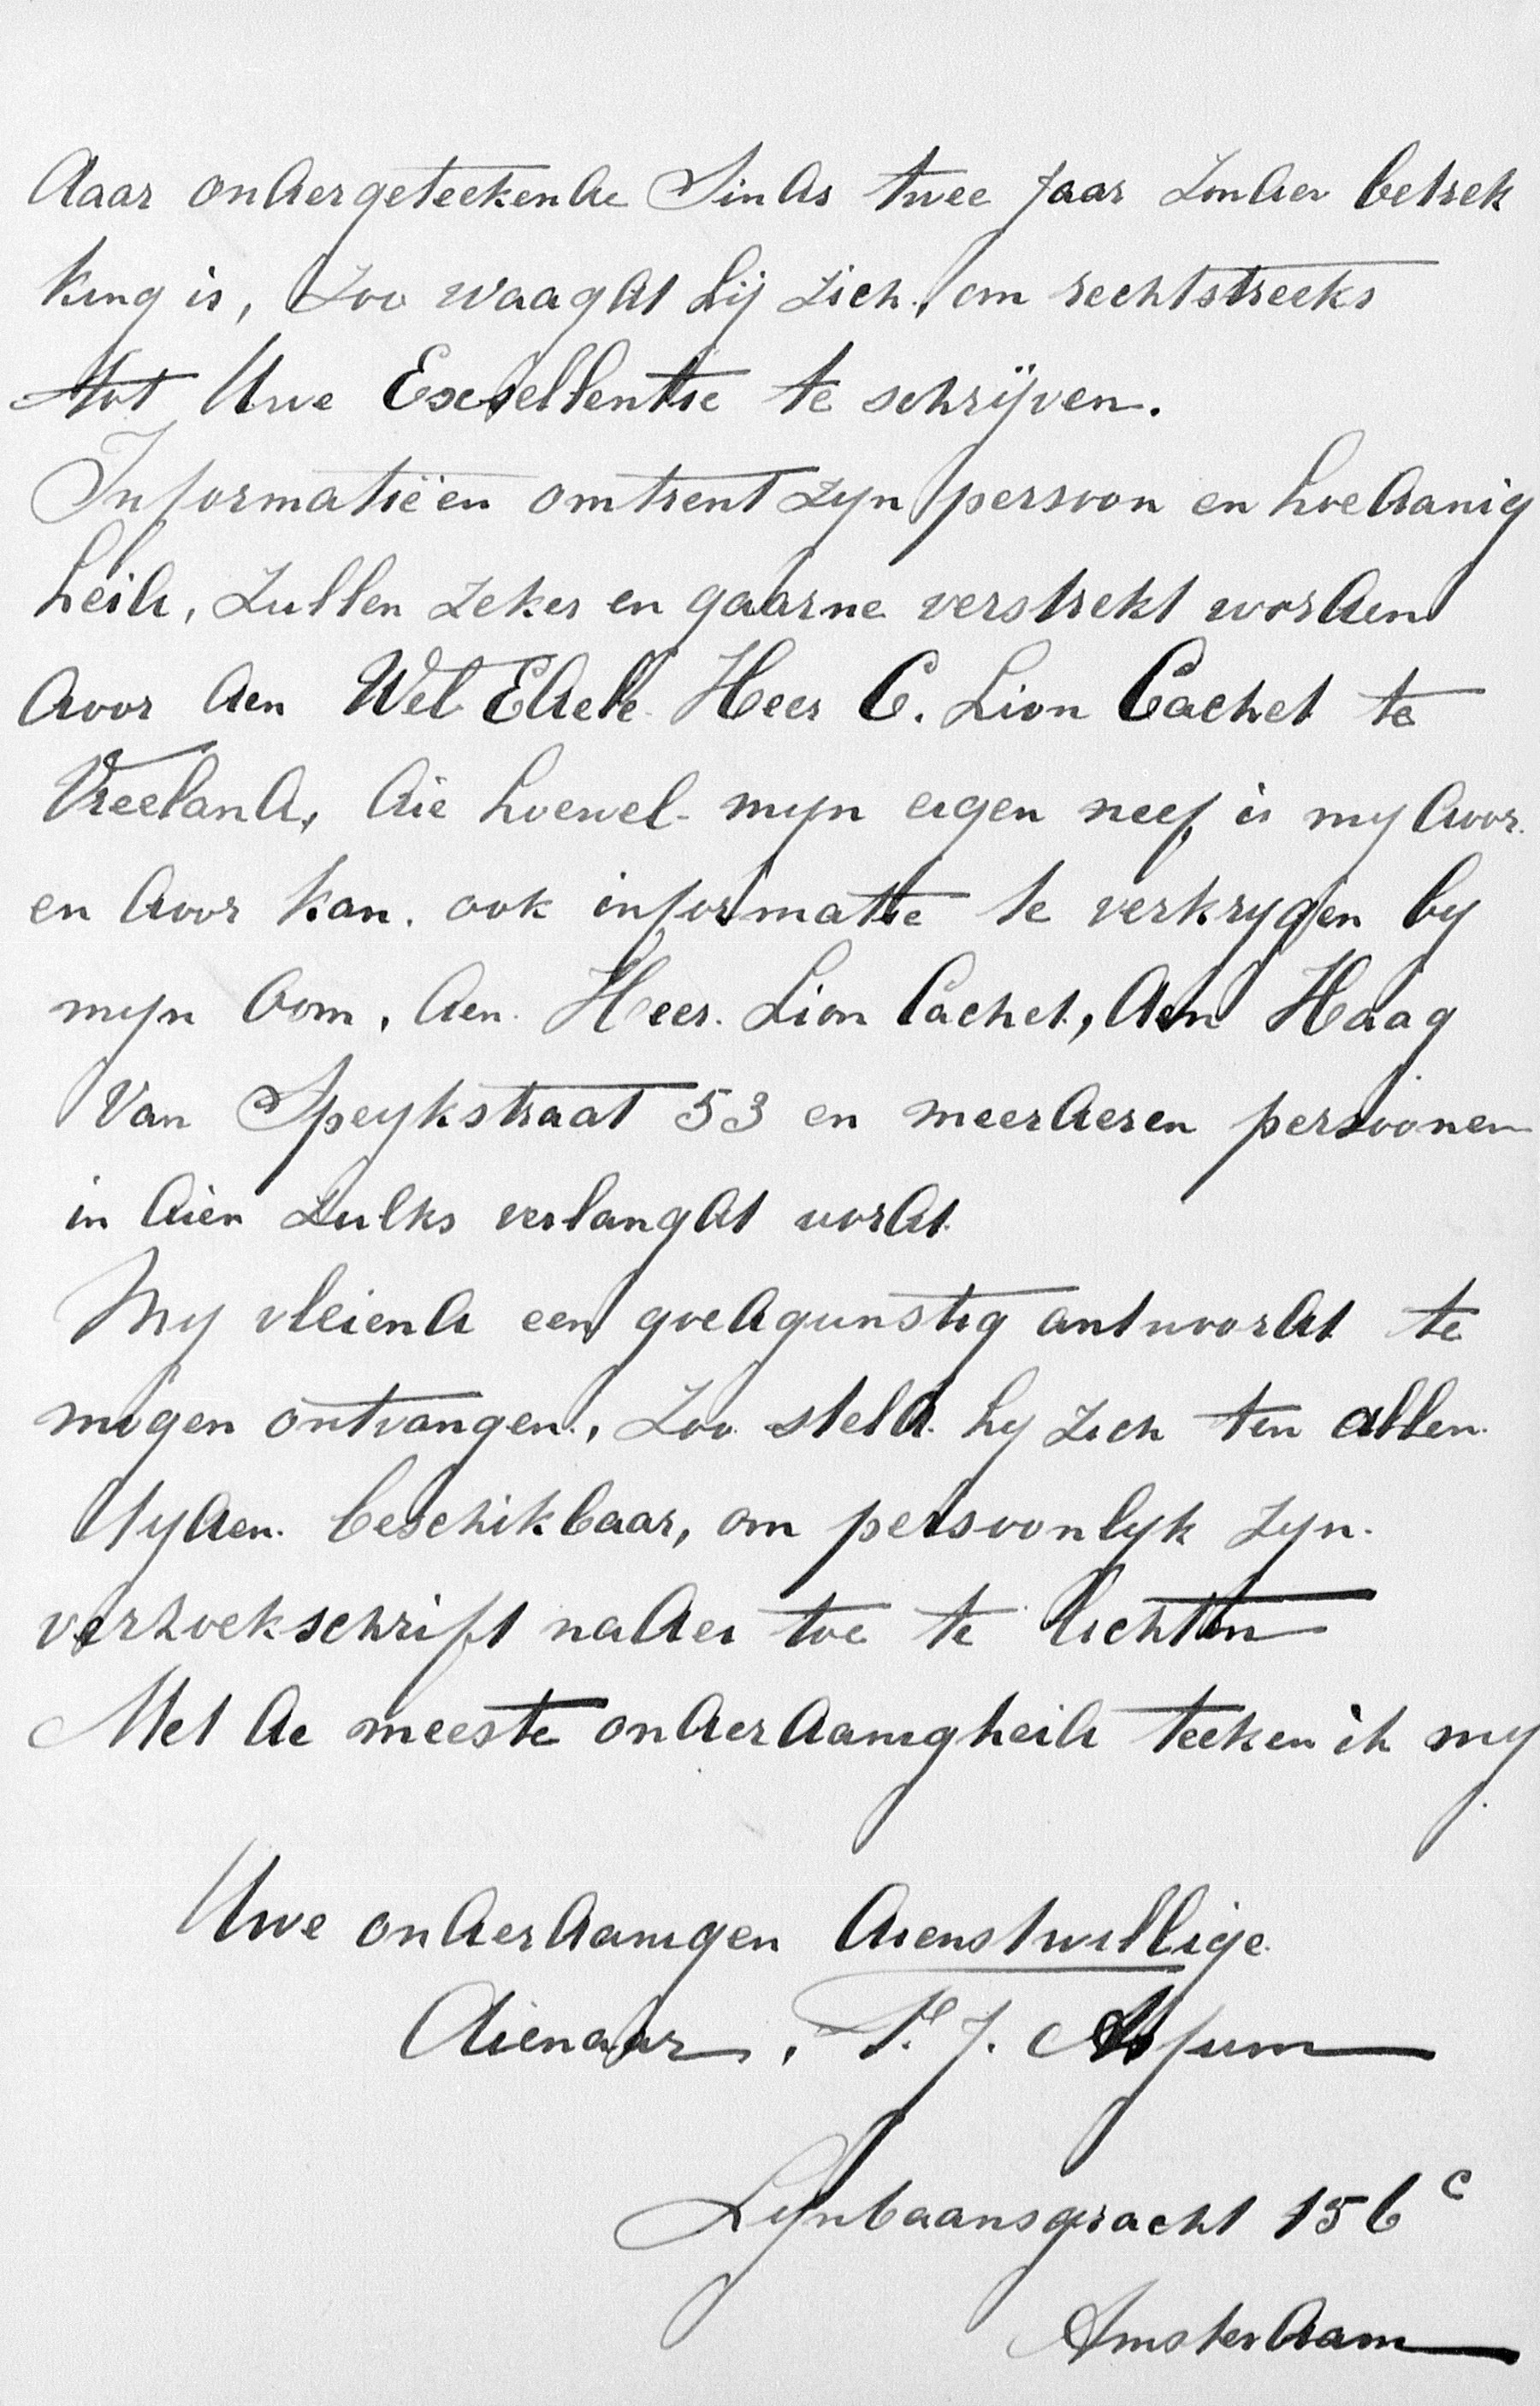 daar ondergeteekende Sinds twee jaar zonder betrek
king is, Zoo waagdt hij zich, om rechtstreeks
tot Uwe Excsellentie te schrijven.
Informatiëen omtrent zyn persoon en hoedanig
heid, Zullen zeker en gaarne verstrekt worden
door den Wel Edele Heer C. Lion Cachet te
Vreeland, die hoewel mijn eigen neef is my door
en door kan. ook informatie te verkrygen by
mijn Oom, den Heer. Lion Cachet, den Haag
Van Speykstraat 53 en meerderen persoonen
in dien Zulks verlangdt wordt.
My vleiend een goedgunstig antwoordt te
mogen ontvangen, Zoo steld hy zich ten allen
tyden beschikbaar, om persoonlyk zyn
verzoekschrift nader toe te lichten
Met de meeste onderdanigheid teeken ik my
Uwe onderdanigen dienstwillige
dienaar, P. J.
Lynbaansgracht 156 c
Amsterdam